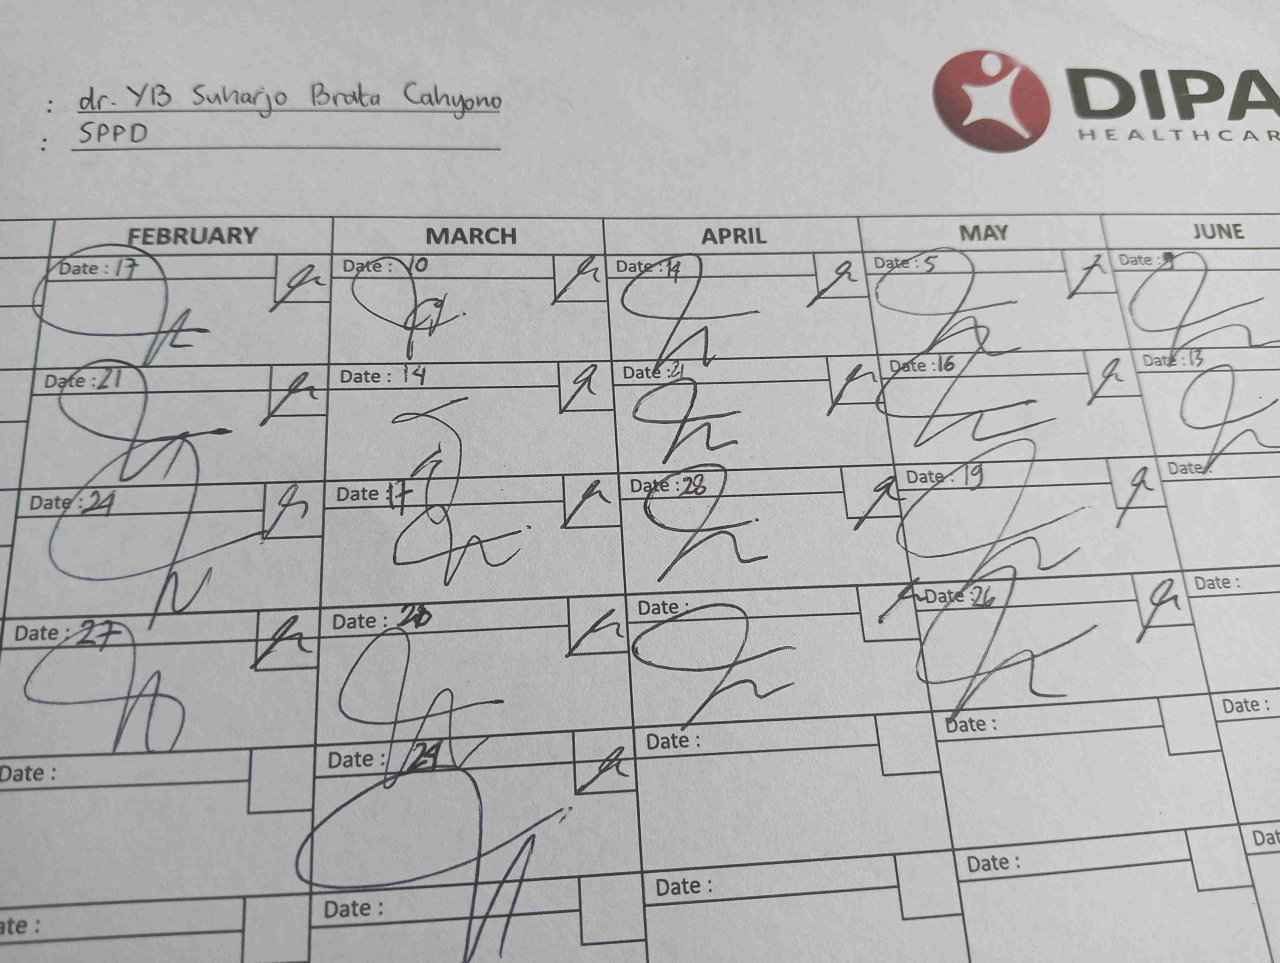 : dr. YB Suharjo Brata Cahyono
: SPPD
DIPA
HEALTHCAR
FEBRUARY MARCH APRIL MAY JUNE
Date : 17 Date : 10 Date : 14 Date : 5 Date :
Date : 21 Date : 14 Date : 21 Date : 16 Date : 13
Date : 24 Date : 17 Date : 28 Date : 19 Date
Date : 27 Date : 28 Date : Date : 26 Date :
Date : Date : 29 Date : Date : Date :
ate : Date : Date : Date : Dat